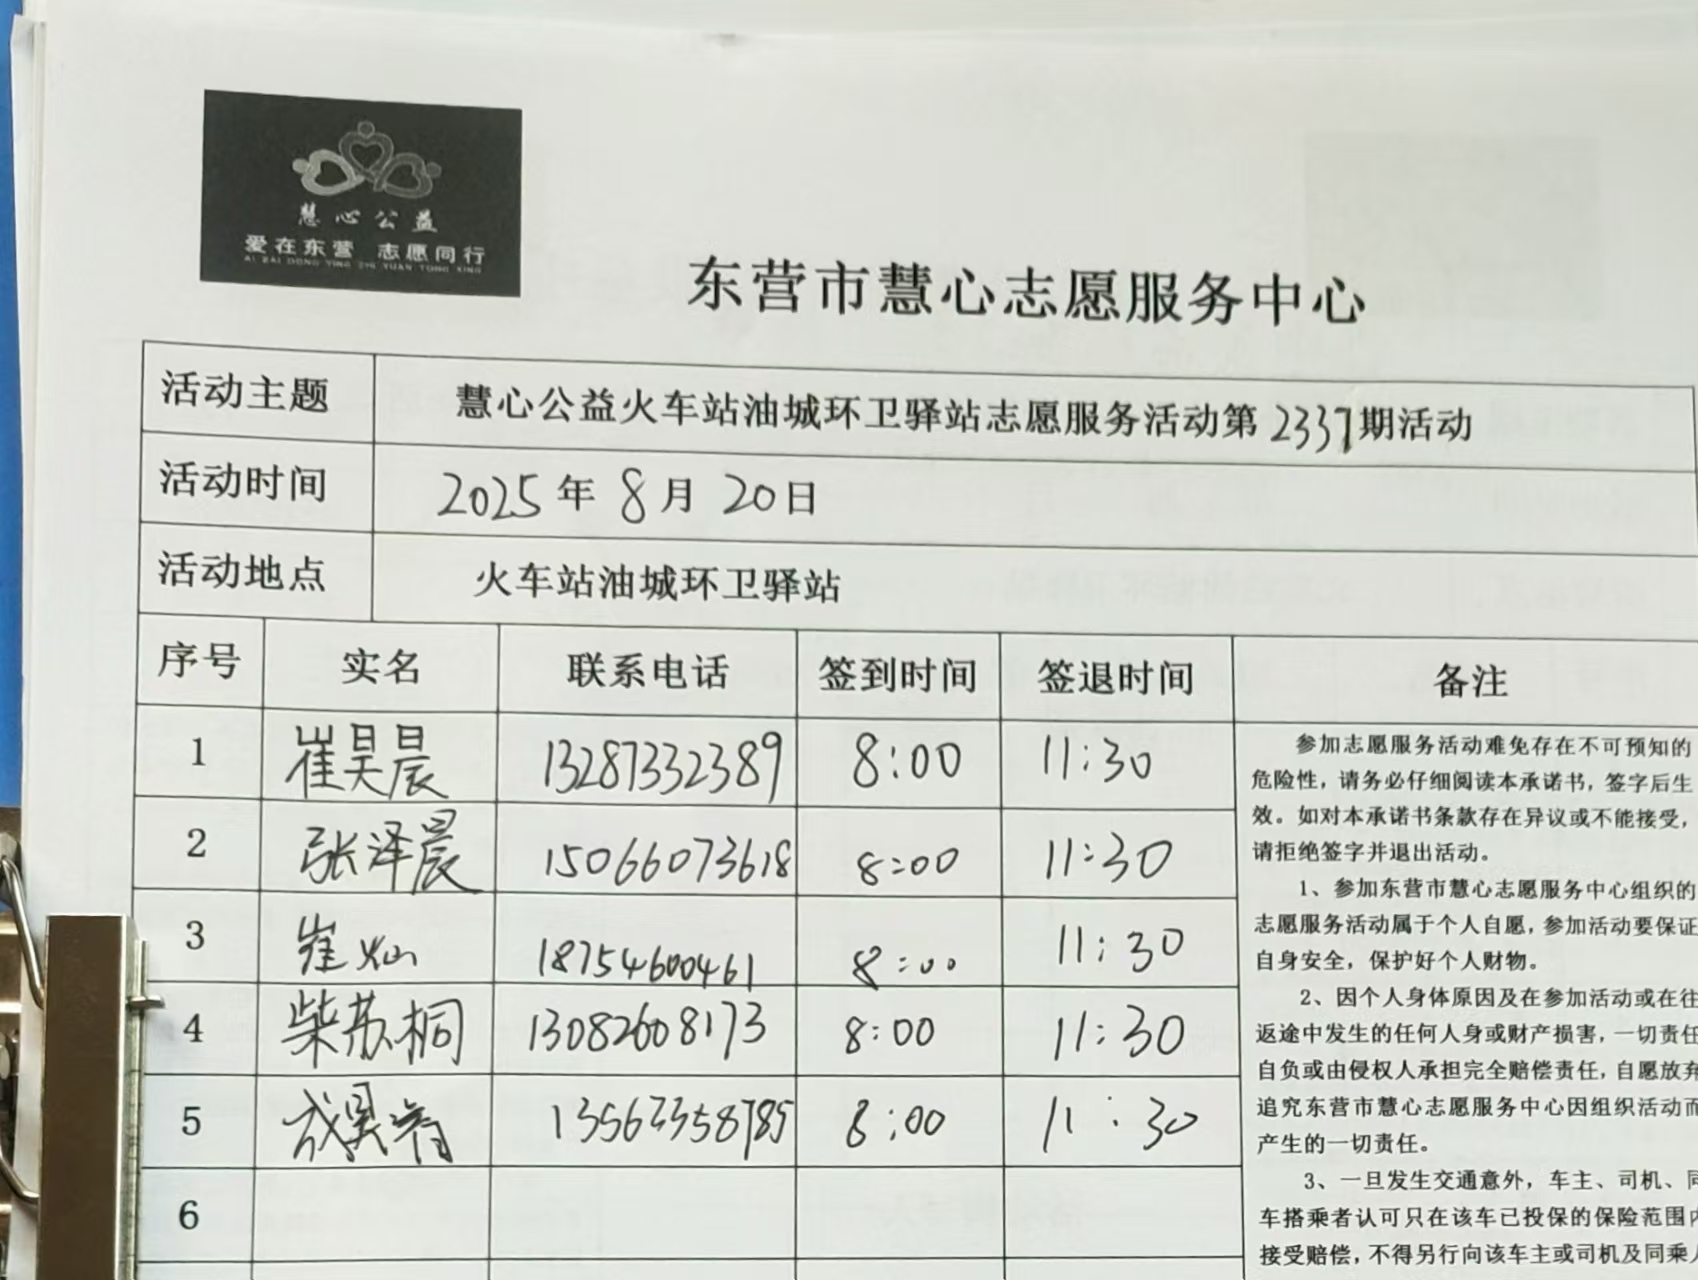 慧心公益
爱在东营 志愿同行
AI ZAI DONG YING ZHI YUAN TONG XING
东营市慧心志愿服务中心
活动主题 慧心公益火车站油城环卫驿站志愿服务活动第2337期活动
活动时间 2025年8月20日
活动地点 火车站油城环卫驿站
序号 实名 联系电话 签到时间 签退时间 备注
1 崔昊晨 13287332389 8:00 11:30
2 张泽晨 15066073618 8:00 11:30
3 崔灿 18754600461 8:00 11:30
4 柴苏桐 13082608173 8:00 11:30
5 成昊 13563358785 8:00 11:30
6
参加志愿服务活动难免存在不可预知的
危险性，请务必仔细阅读本承诺书，签字后生
效。如对本承诺书条款存在异议或不能接受，
请拒绝签字并退出活动。
1、参加东营市慧心志愿服务中心组织的
志愿服务活动属于个人自愿，参加活动要保证
自身安全，保护好个人财物。
2、因个人身体原因及在参加活动或在往
返途中发生的任何人身或财产损害，一切责任
自负或由侵权人承担完全赔偿责任，自愿放弃
追究东营市慧心志愿服务中心因组织活动而
产生的一切责任。
3、一旦发生交通意外，车主、司机、同
车搭乘者认可只在该车已投保的保险范围内
接受赔偿，不得另行向该车主或司机及同乘人